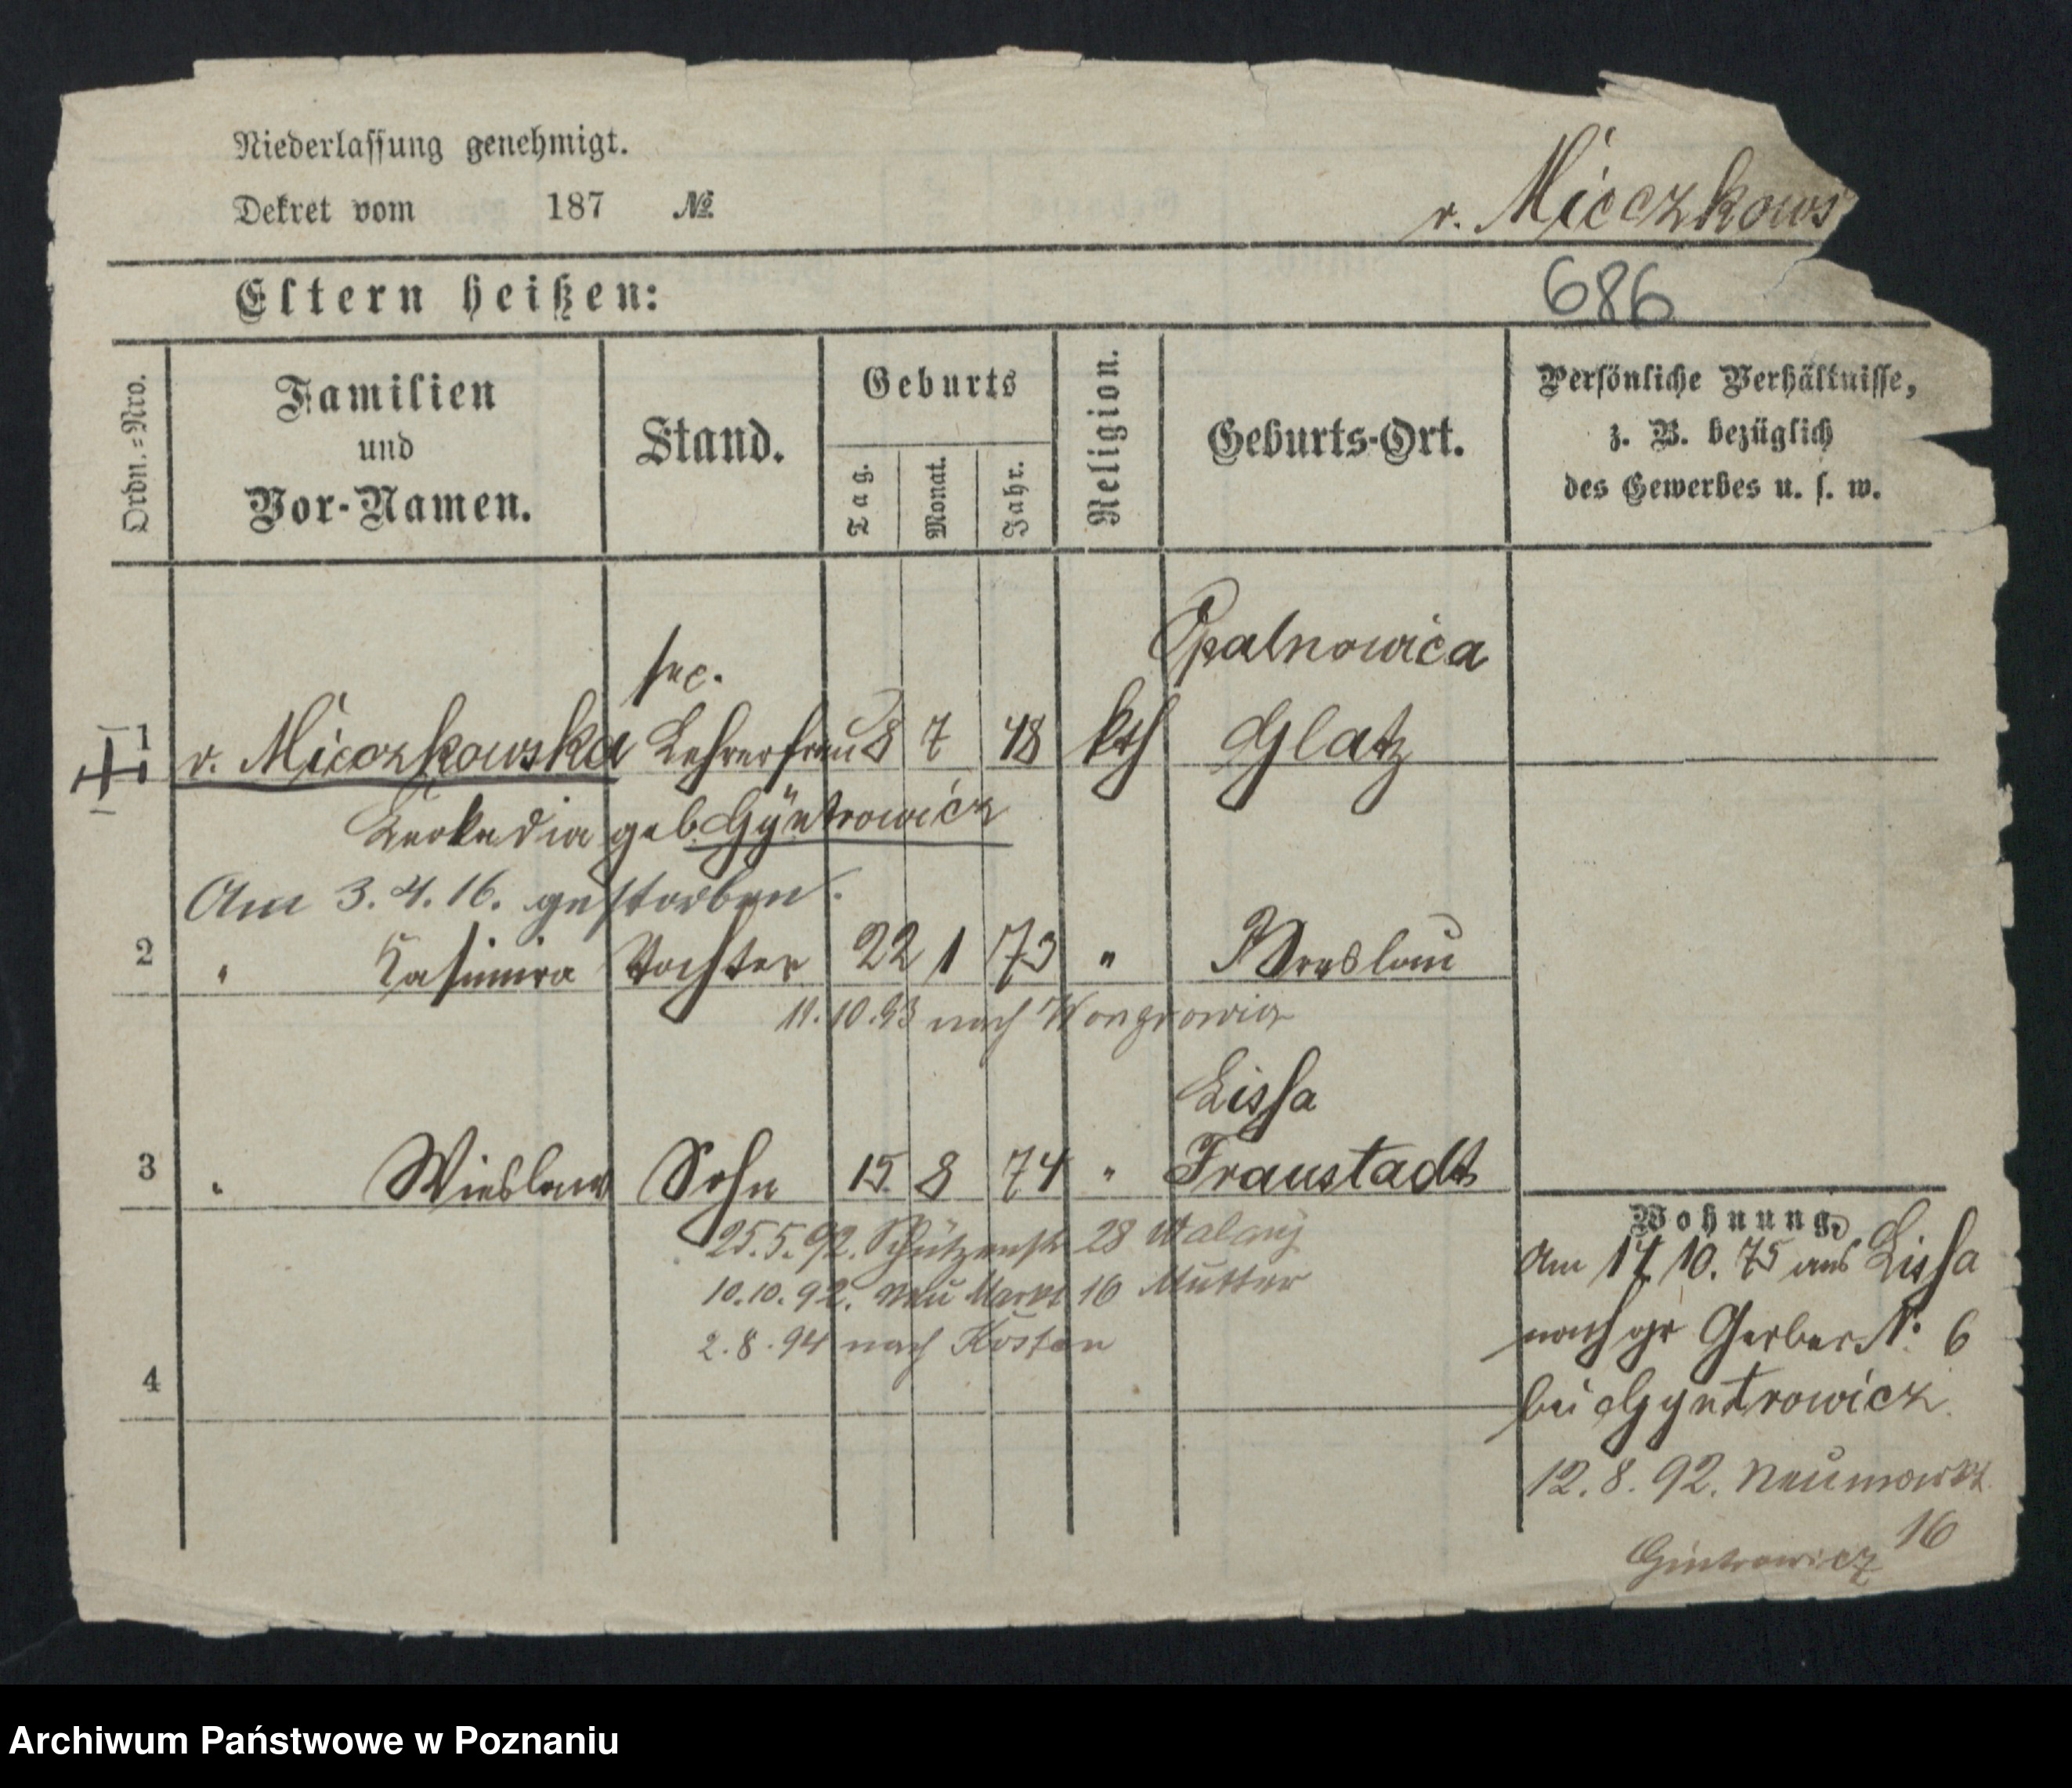 Niederlassung genehmigt.
Dekret vom 187 №
v. Mieczkows
Eltern heißen:
686
Ordn.=Nro.
Familien
und
Vor-Namen.
Stand.
Geburts
Tag.
Monat.
Jahr.
Religion.
Geburts-Ort.
Persönliche Verhältnisse,
z. B. bezüglich
des Gewerbes u. s. w.
Opalnowica
1 v. Mieczkowska Lehrerfrau 8 7 48 kth Glatz
Leokadia geb. Gyntrowicz
Am 3.4.16. gestorben.
2 " Kasimira Tochter 22 1 73 " Breslau
11.10.93 nach Wongrowitz
Lissa
3 " Wieslaw Sohn 15 8 74 " Fraustadt
25.5.92. Schützenstr 28
10.10.92. Neu Markt 16 Mutter
2.8.94 nach Kosten
4
Wohnung.
Am 17 10. 75 aus Lissa
nach gr Gerber N: 6
bei Gyntrowicz.
12.8.92. Neumarkt
16
Gintrowicz
Archiwum Państwowe w Poznaniu